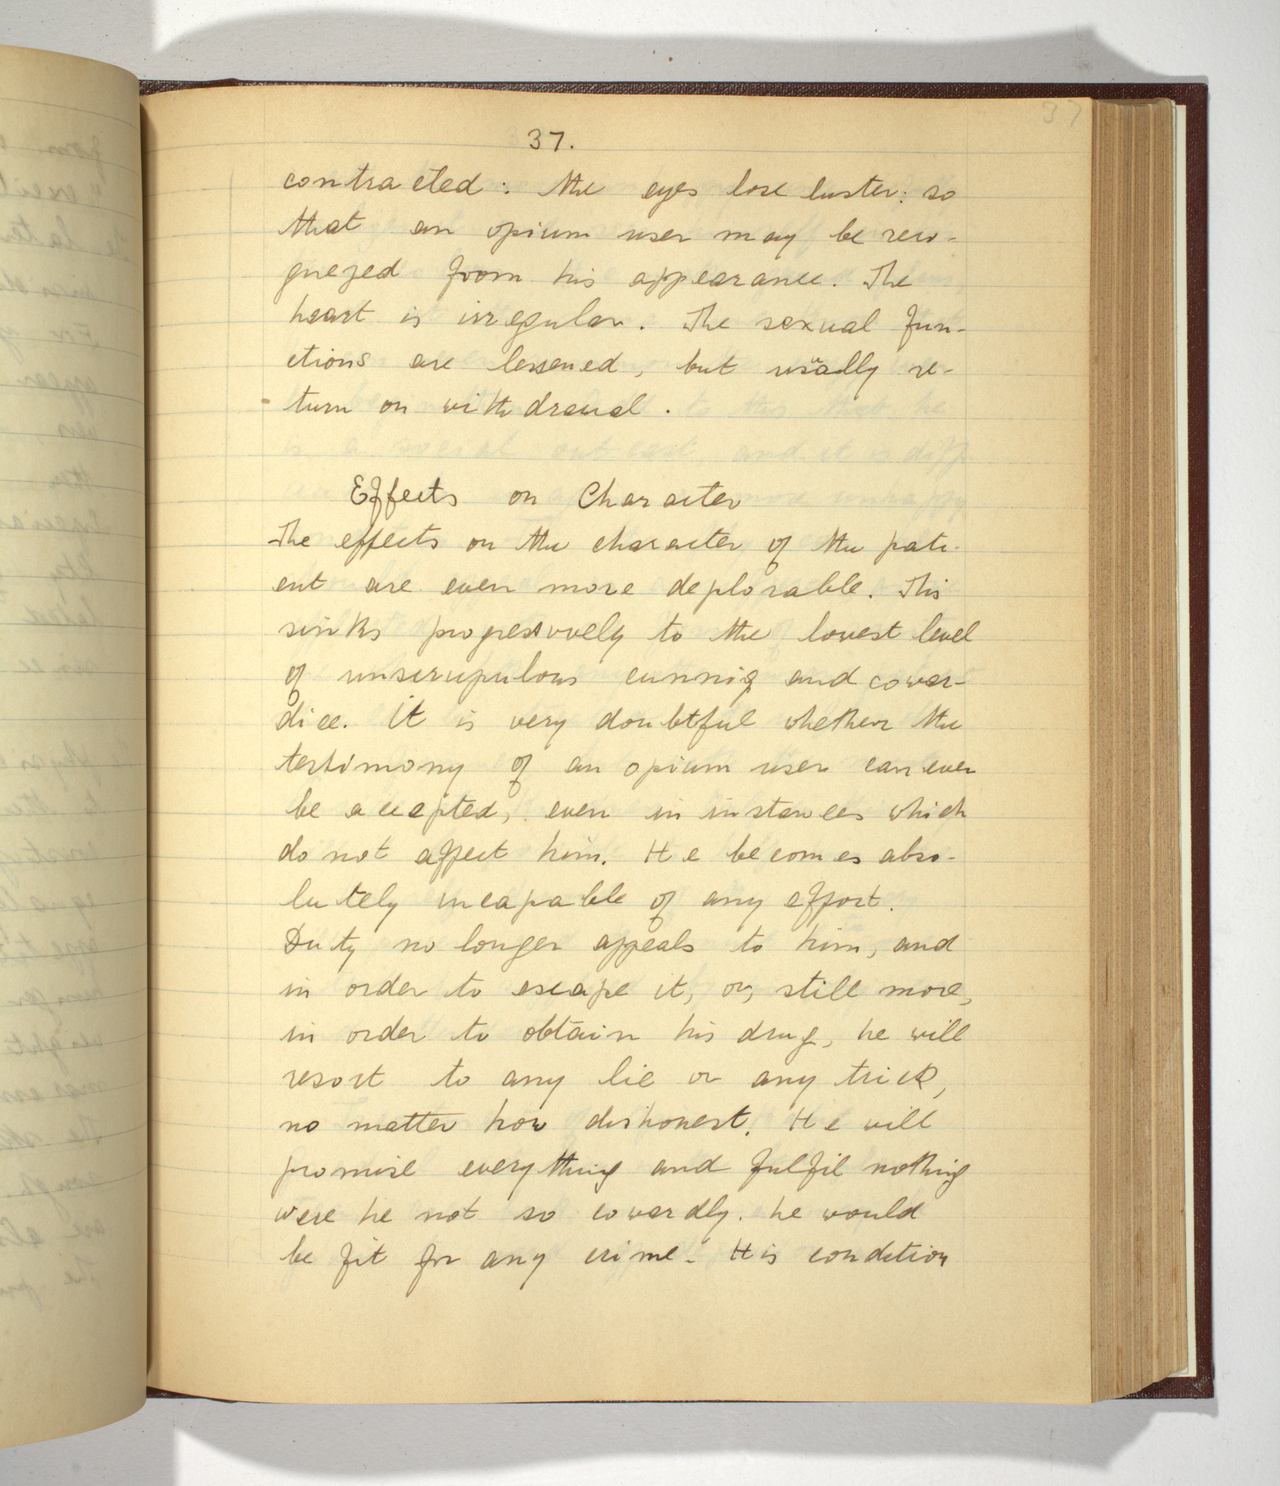 37
37.
contracted: the eyes lose luster: so
that an opium user may be reco-
gnezed from his appearance. The
heart is irregular. The sexual fun-
ctions are lessened, but usually re-
turn on withdrawal.
Effects on Character
The effects on the character of the pati-
ent are even more deplorable. This
sinks progressively to the lowest level
of unscrupulous cunnig and cowar-
dice. It is very doubtful whether the
testimony of an opium user can ever
be accepted, even in instances which
do not affect him. He becomes abso-
lutely incapable of any effort.
Duty no longer appeals to him, and
in order to escape it, or, still more,
in order to obtain his drug, he will
resort to any lie or any trick,
no matter how dishonest. He will
promise everything and fulfil nothing
were he not so cowardly. he would
be fit for any crime. His condition